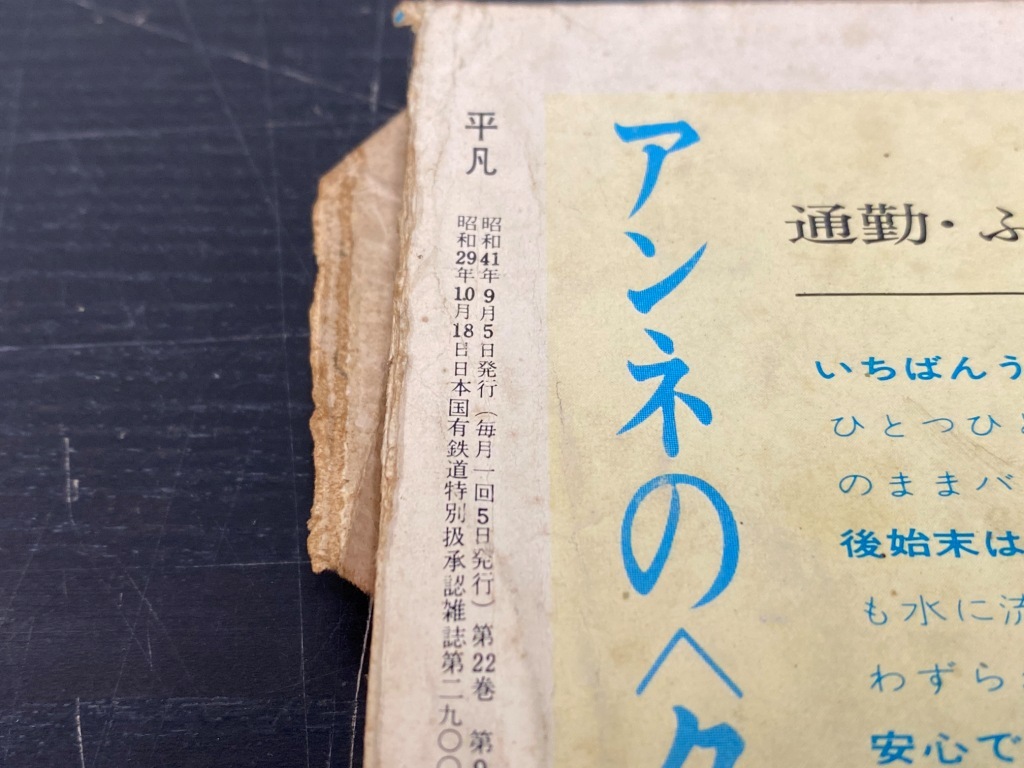 平凡
昭和41年9月5日発行（毎月一回5日発行）第22巻 第9
昭和29年10月18日日本国有鉄道特別扱承認雑誌第二九〇〇
アンネの〈ク
通勤・ふ
いちばんう
ひとつひと
のままバ
後始末は
も水に流
わずらわ
安心で